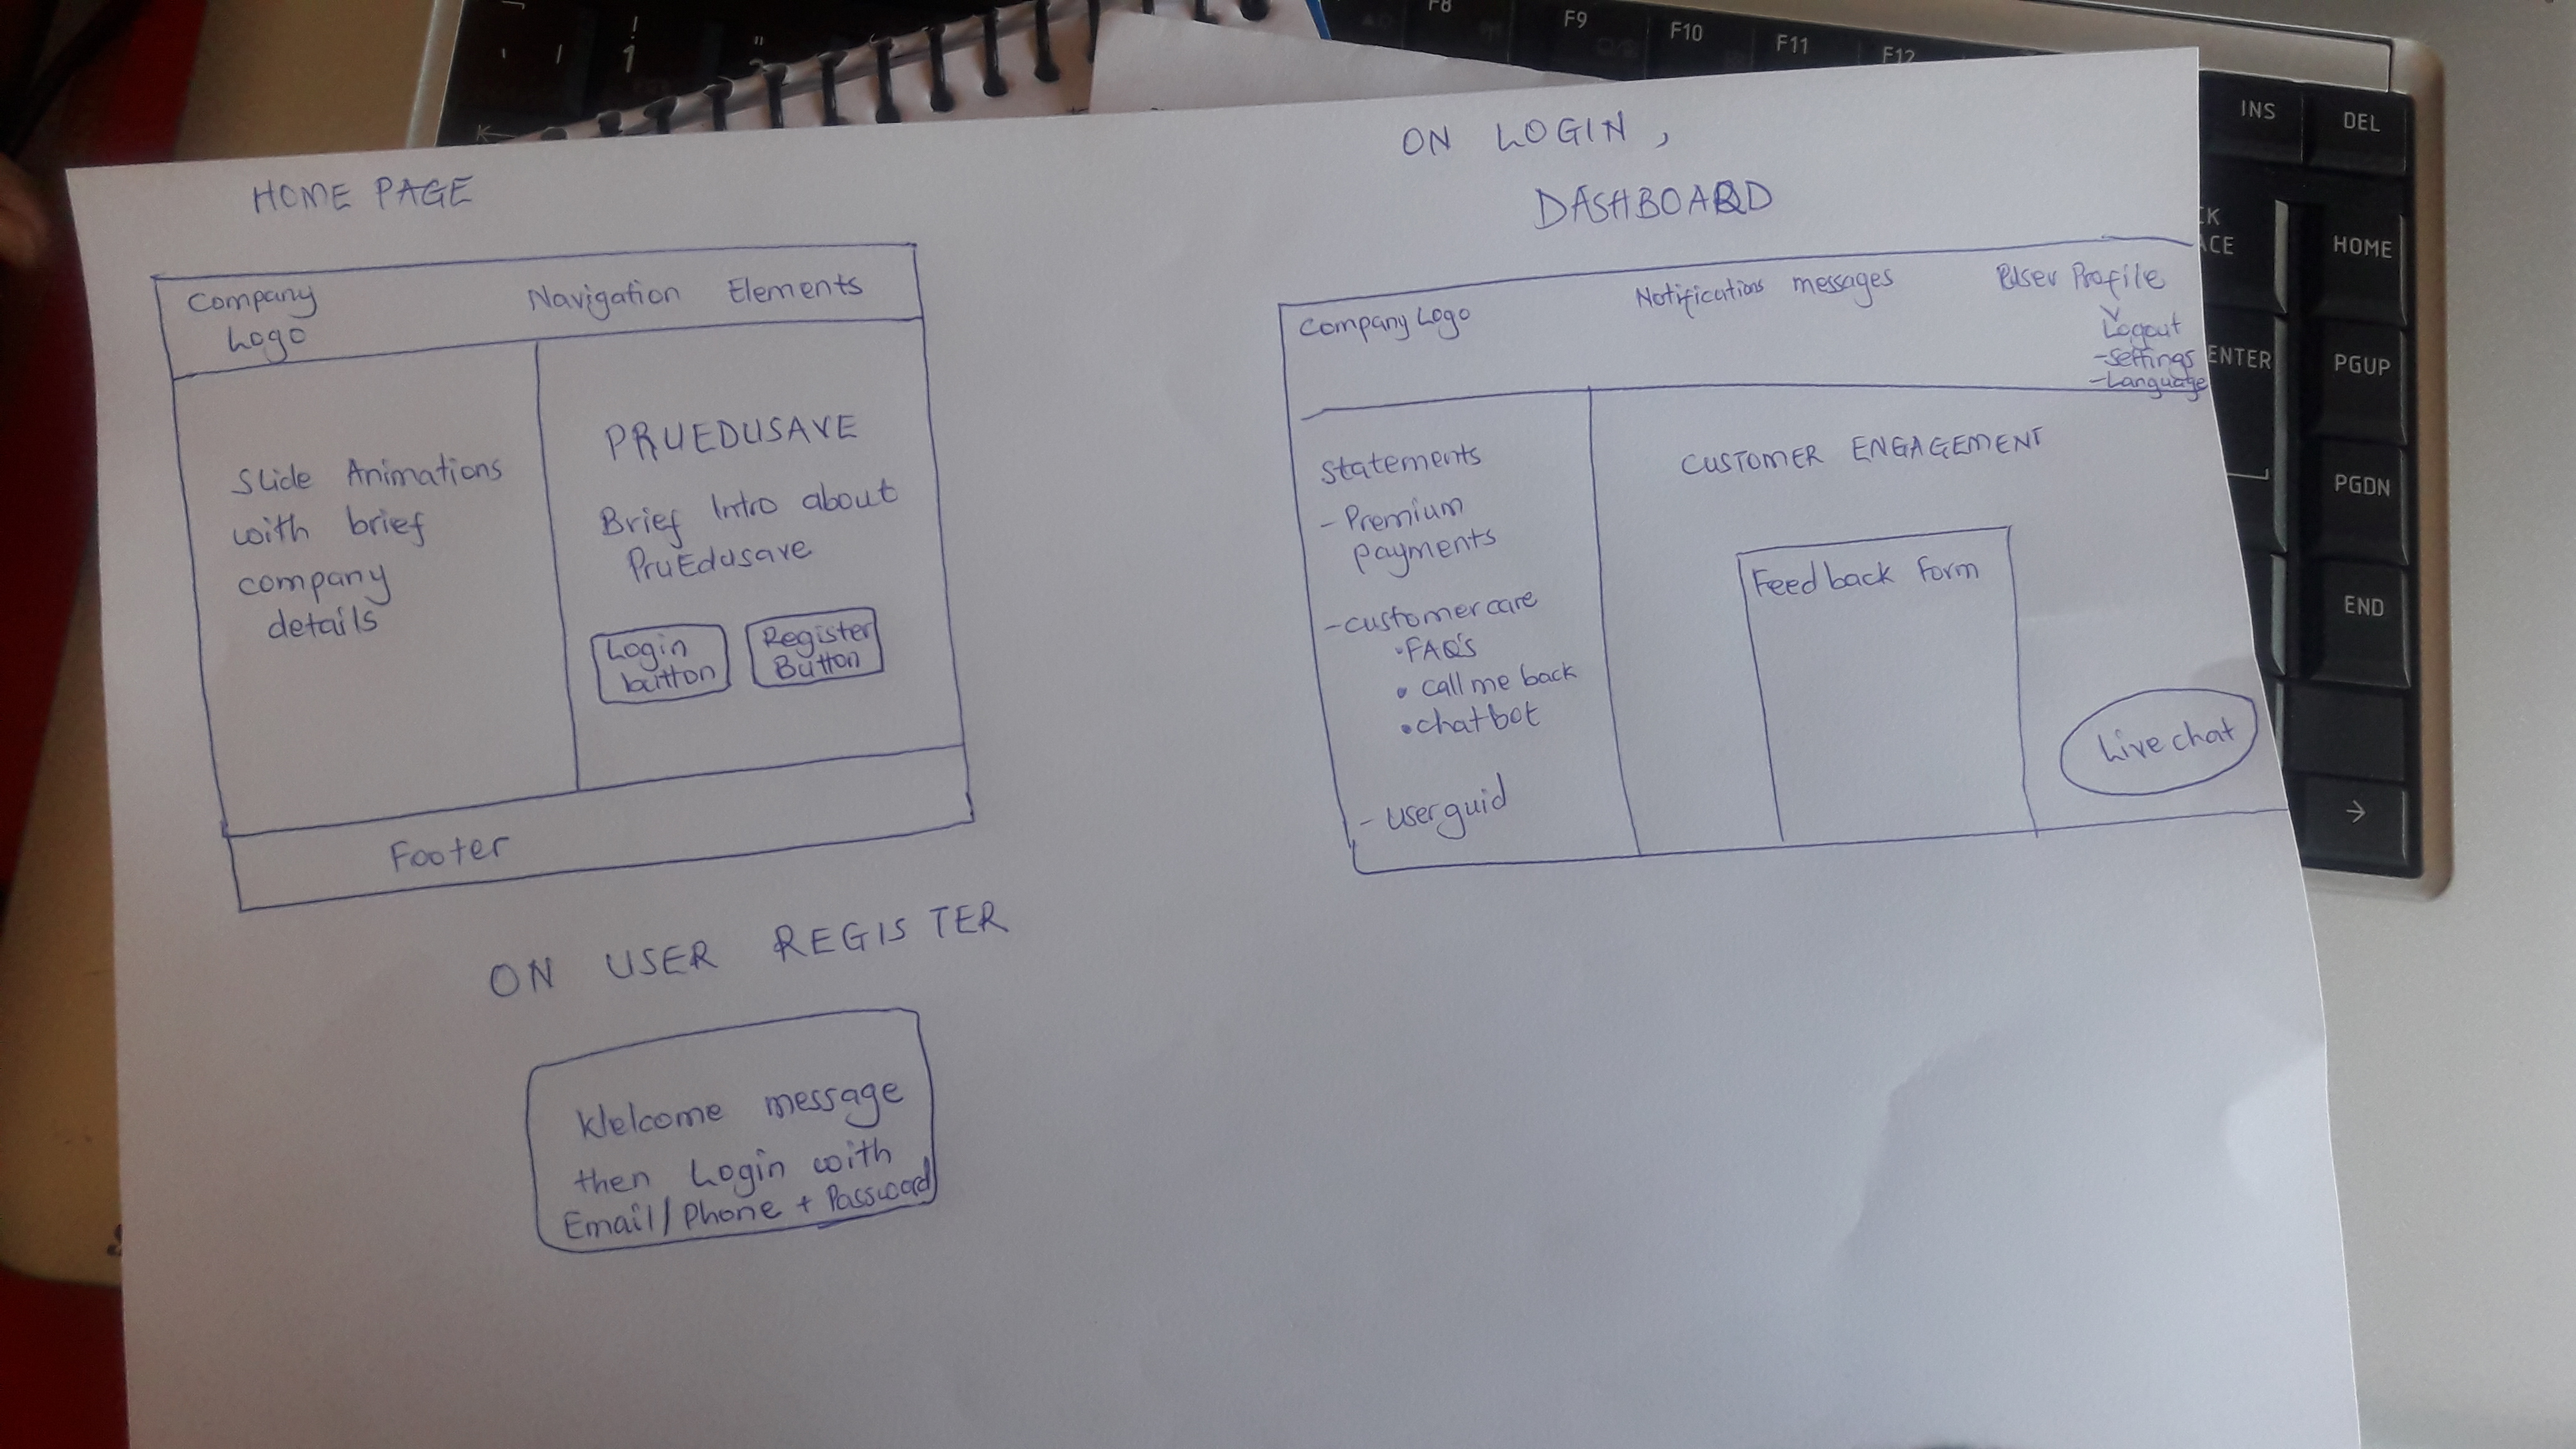 HOME PAGE
Company
Logo
Navigation Elements
Slide Animations
with brief
company
details
PRUEDUSAVE
Brief Intro about
PruEdusave
Login
button
Register
Button
Footer
ON USER REGISTER
Welcome message
then Login with
Email/Phone + Password
ON LOGIN,
DASHBOARD
Company Logo
Notifications messages
User Profile
Logout
-Settings
-Language
Statements
- Premium
payments
- customer care
• FAQ's
• call me back
• chatbot
- user guid
CUSTOMER ENGAGEMENT
Feedback form
Live chat
!
1
"
K
F8
F9
F10
F11
F12
INS
DEL
CK
ACE
HOME
ENTER
PGUP
PGDN
END
→